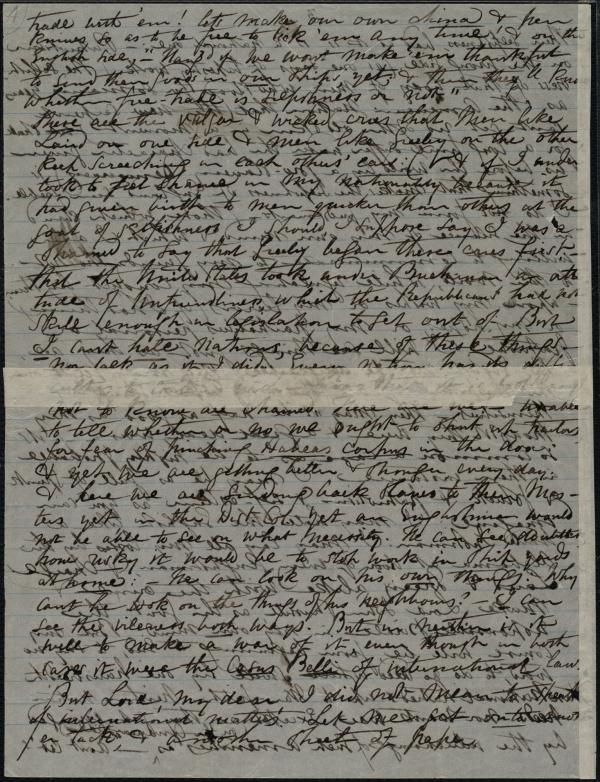 4
trade with 'em! let's make our own china & pen
knives so as to be free to lick 'em any time, & on the
English side, - "Hang 'em if we wont make 'em thankful
to send their goods in our ships yet, & then they'll know
whether free trade is selfishness or not."
These are the vulgar & wicked cries that men like
Laird on one side, & men like Greeley on the other
keep screeching in each others' ears: (& if I under
took to feel shame in my nationality because it
had given birth to men quicker than others at the
goal of selfishness I should suppose say I was a
shamed to say that Greeley began these cries first -
that the United States took under Buchanan an atti
tude of unfriendliness which the Republicans had not
skill enough in legislation to get out of. But
I can't hate nations because of these things -
nor lack as it I did. Every nation has its
not to know are ashamed
to tell whether or no we ought to shut up traitors
for fear of pinching Habeas corpus in the door.
& yet we are getting better & stronger every day.
& here we are sending back slaves to their Mas-
ters yet in the Dist Co. Yet an Englishman would
not be able to see on what necessity. He can see doubtless
how risky it would be to stop work in ship yards
at home: - He can look on his own things. Why
can't he look on the things of his neighbours? - I can
see the vileness both ways. But in neither is it
well to make a war of it even though in both
cases it were the Casus Belli of International Law.
But Love, my dear, I did not mean to
in international matters. Let me put
on tack, & another sheet of paper